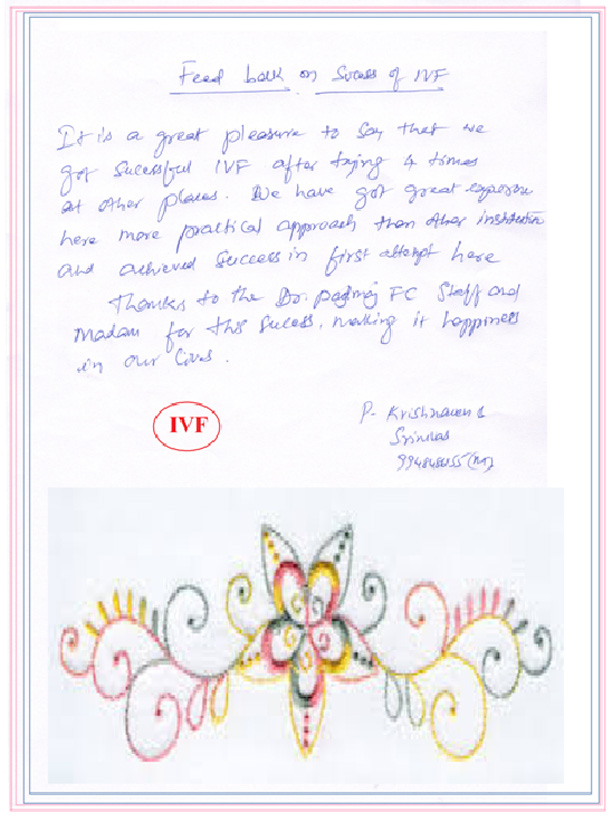 Feed back on Sucess of IVF
It is a great pleasure to say that we
got sucessful IVF after trying 4 times
at other places. We have got great exposure
here more practical approach than other institution
and achieved success in first attempt here
Thanks to the Dr. padmaj FC Staff and
madam for this sucess, making it happiness
in our lives.
IVF
P. Krishnaveni &
Srinivas